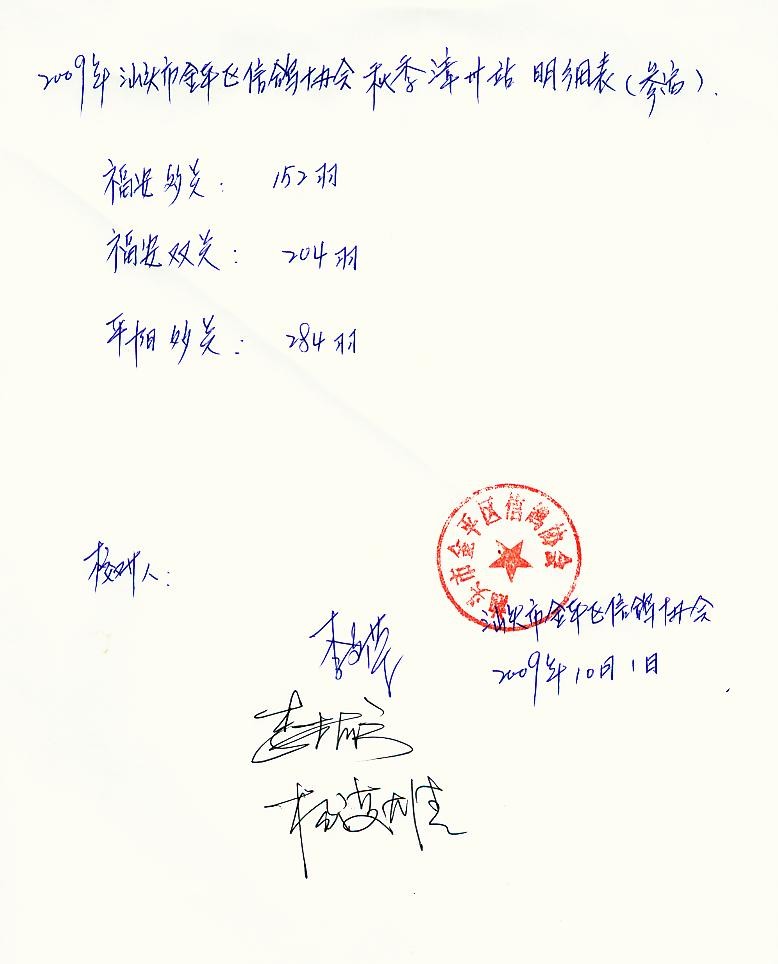 2009年汕头市金平区信鸽协会秋季漳州站明细表(参照).
福安多关: 152羽
福安双关: 204羽
平阳多关: 284羽
汕头市金平区信鸽协会
校对人:
汕头市金平区信鸽协会
2009年10月1日